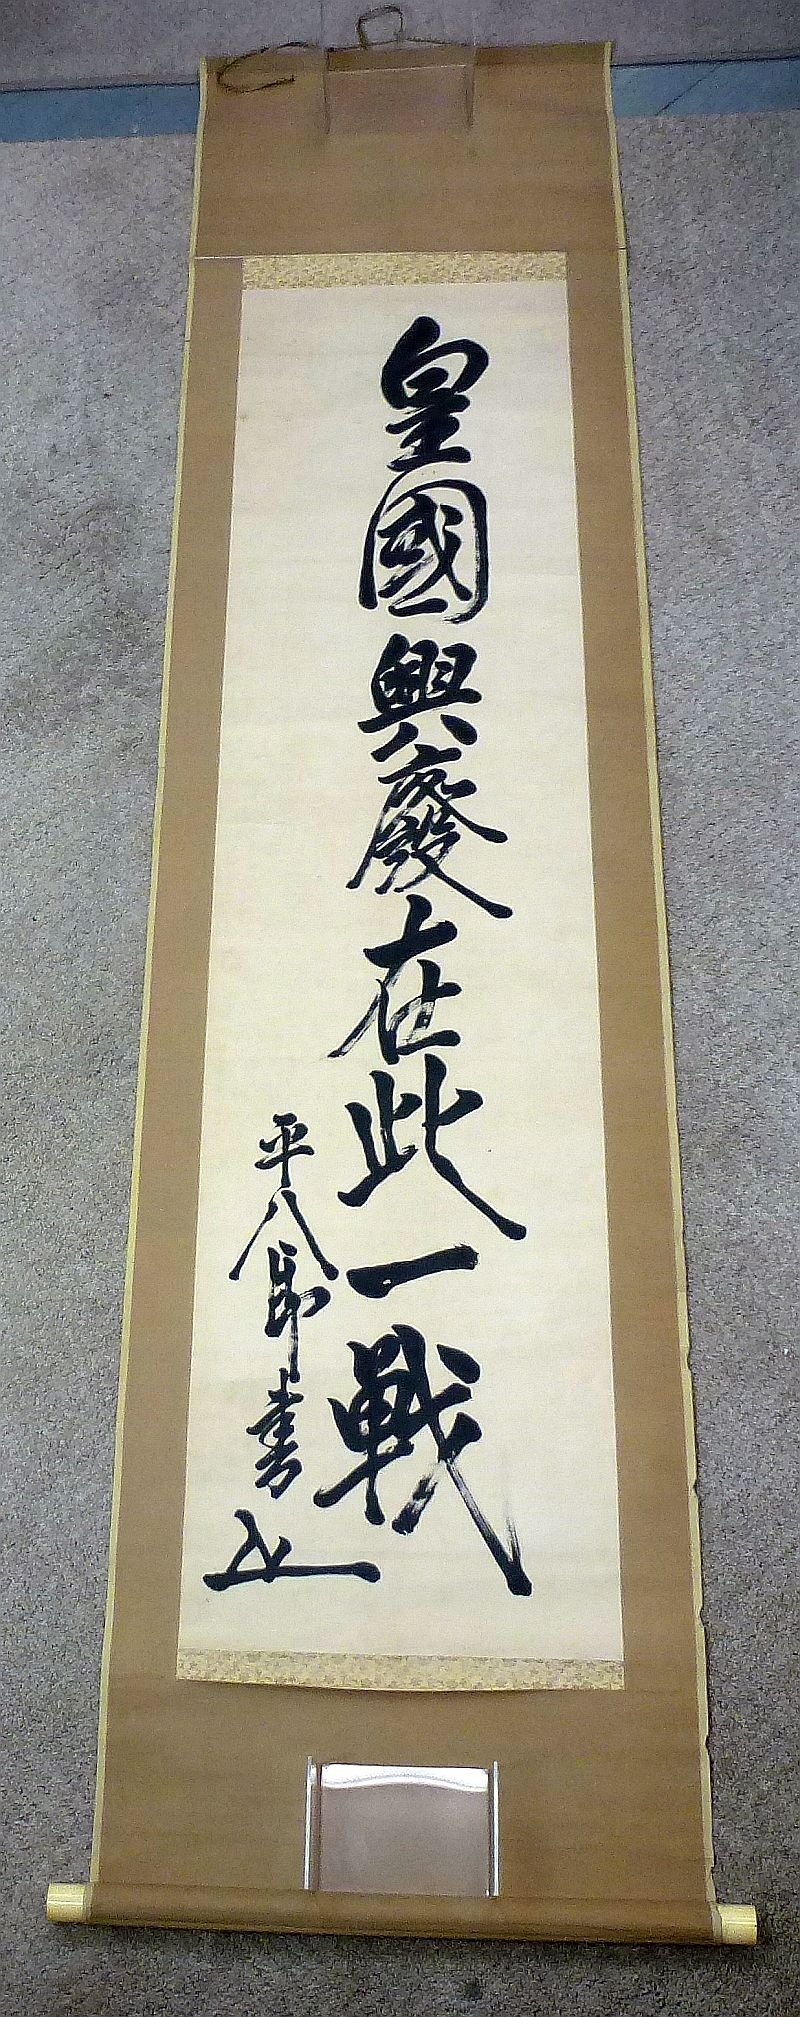 皇國興廢在此一戰
平八郎書之